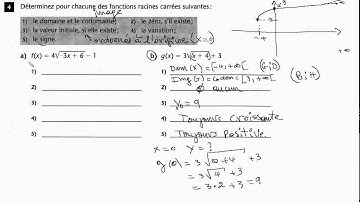 4 Déterminez pour chacune des fonctions racines carrées suivantes:
image
1) le domaine et le codomaine; 2) le zéro, s'il existe;
3) la valeur initiale, si elle existe; 4) la variation;
5) le signe. ordonnée à l'origine (x=0)
a) f(x) = 4√-3x + 6 - 1
b) g(x) = 3√(x + 4) + 3
1)
2)
3)
4)
5)
1) Dom(x) = [-4, +∞[ (B;D)
Img(y) = Codom = [3, +∞[ (B;H)
2) aucun
3) y₀ = 9
4) Toujours croissante
5) Toujours positive
x=0 y=?
g(0) = 3√0+4 +3
= 3√4 +3
= 3·2 +3 = 9
3
-4
+∞